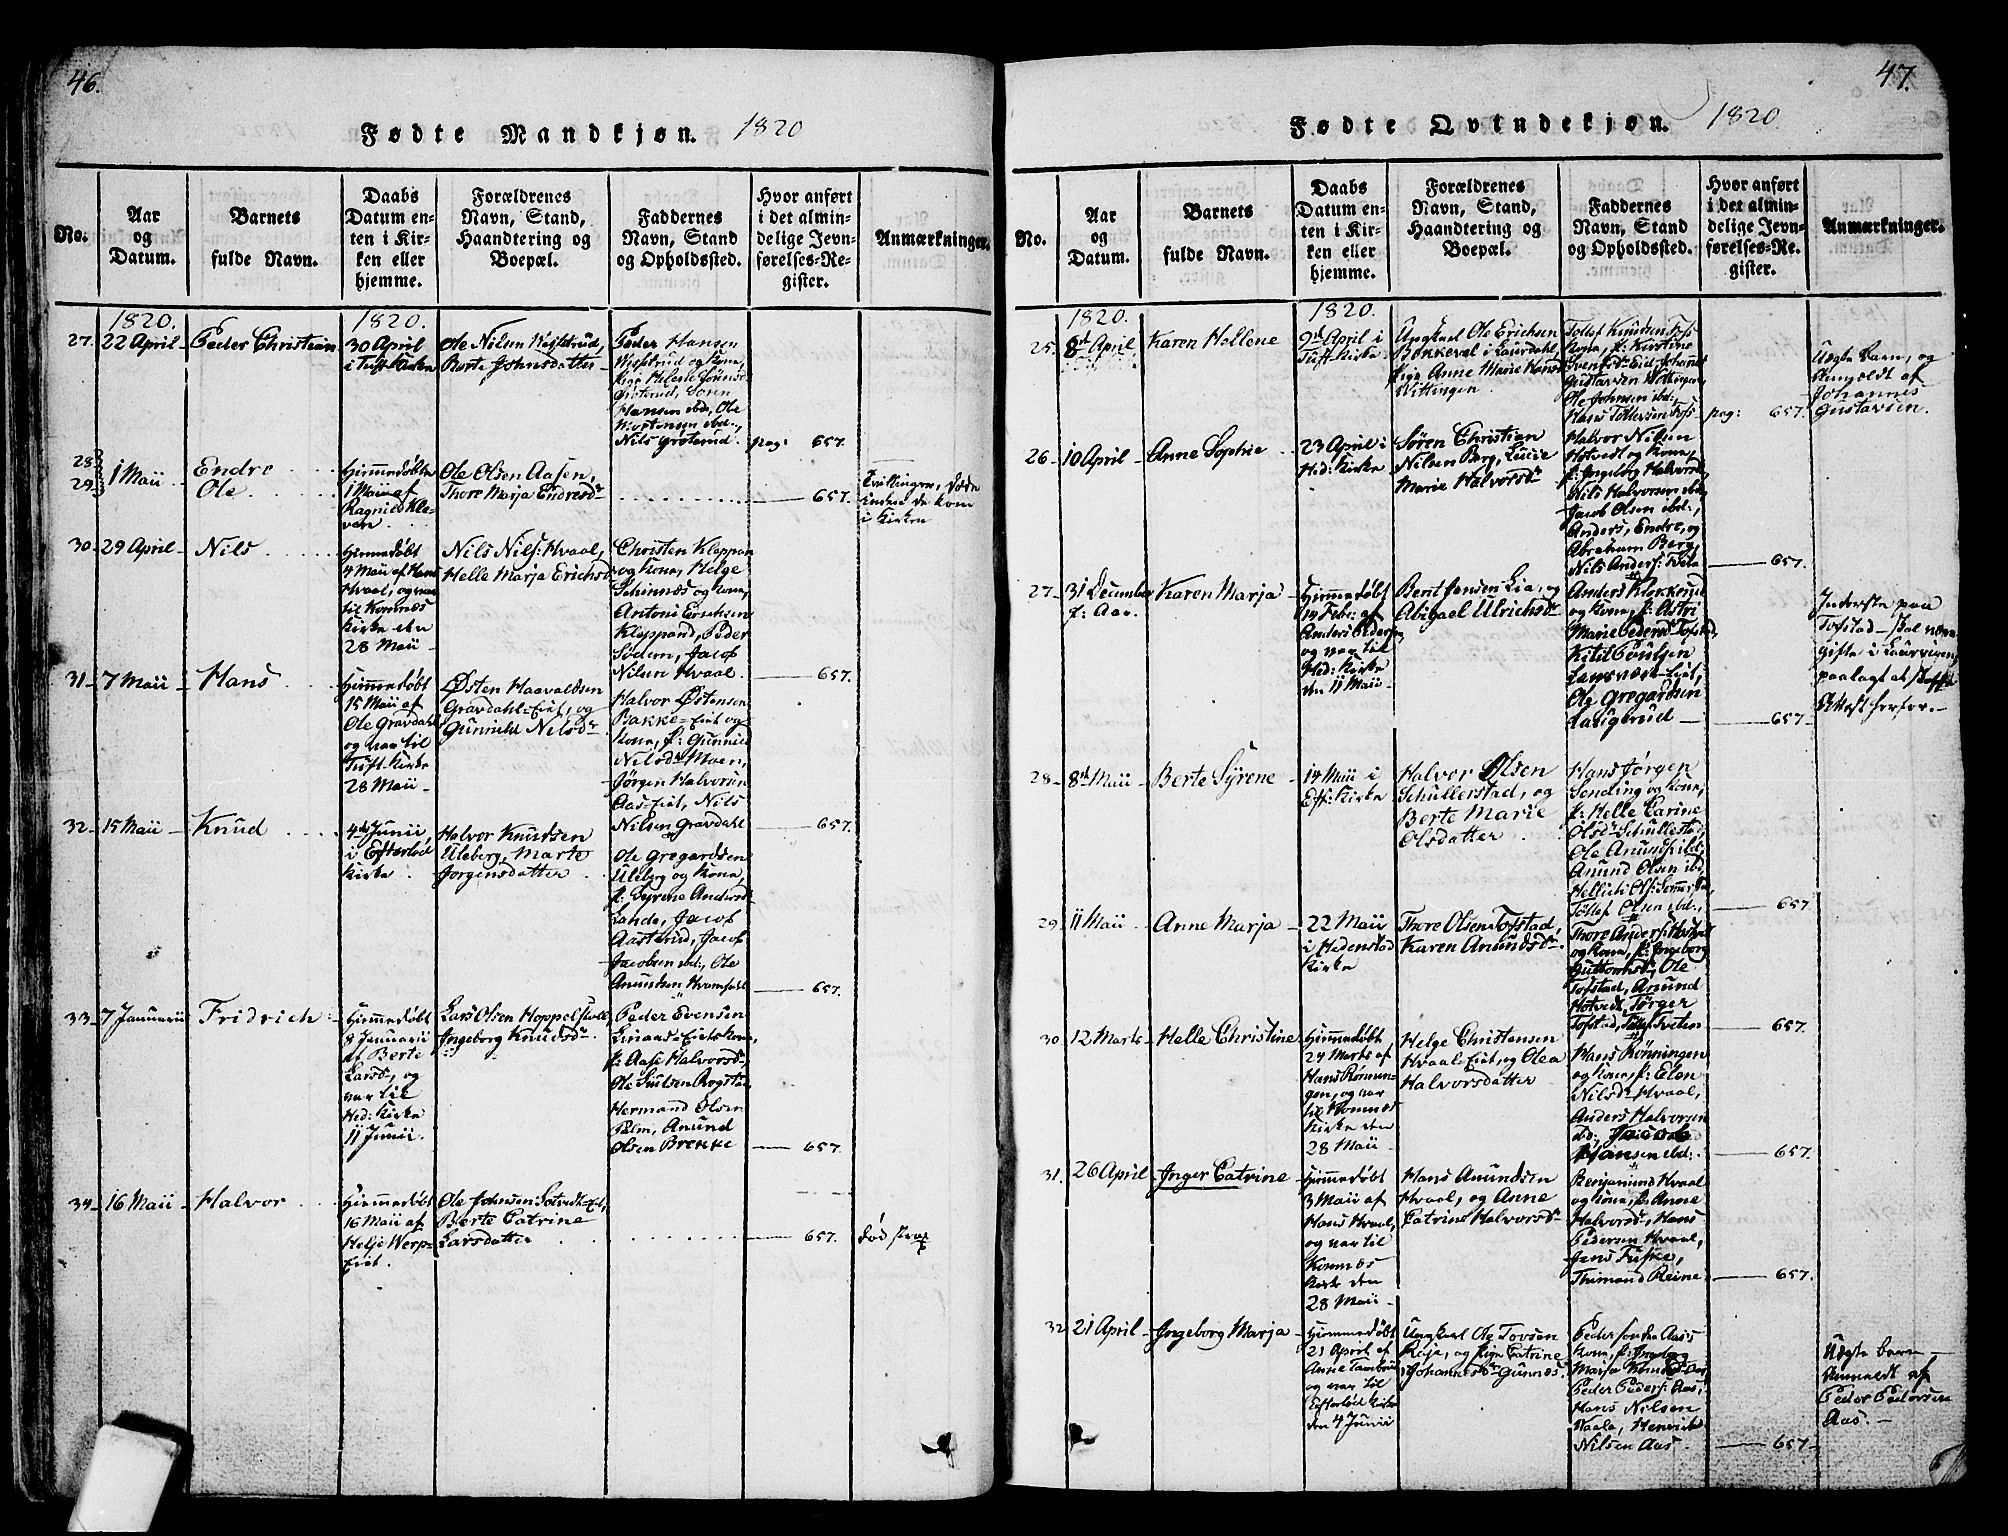 46.
Fødte Mandkjøn. 1820
No.
Aar
og
Datum.
Barnets
fulde Navn.
Daabs
Datum en-
ten i Kir-
ken eller
hjemme.
Forældrenes
Navn, Stand,
Haandtering og
Boepæl.
Faddernes
Navn, Stand
og Opholdssted.
Hvor anført
i det almin-
delige Jevn-
førelses-Re-
gister.
Anmærkninger.
1820.
1820.
27.
22 April
Peder Christian
30 April
i Tuft Kirke
Ole Nilsen
Berte Johnsdatter
Peder Hansen
og Kone,
Grøterud, Sören
Hansen ibd, Ole
Mortensen ibd.,
Nils Grøterud.
pag: 657.
28
29
1 Maii
Endre
Ole
Hiemmedøbte
1 Maii af
Ragnild Kle-
ven
Ole Olsen Aasen,
Thore Marja Endresdr
657.
Tvillinger, døde
inden de kom
i Kirken
30
29 April
Nils
Hiemmedøbt
4 Maii af Hans
Hvaal, og var
til Komnæs
Kirke den
28 Maii
Nils Nils: Hvaal,
Helle Marja Erichsdr
Christen Kloppan
og Kone, Helge
Skinnæs og Kone,
Antoni Erichsen
Kloppand, Peder
Sødem, Jacob
Nilsen Hvaal.
657.
31
7 Maii
Hans
Hiemmedøbt
15 Maii af
Ole Gravdahl
og var til
Tuft Kirke
28 Maii
Østen Haavaldsen
Gravdahl-Eiet, og
Gunnild Nilsdr
Halvor Østensen
Bakke-Eiet og
Kone, p: Gunnild
Nilsdr Moen,
Jørgen Halvorsen
Aas-Eiet, Nils
Nilsen Gravdahl
657.
32
15 Maii
Knud
4de Junii
i Efteløds
Kirke
Halvor Knudsen
Uleberg, Marte
Jorgensdatter
Ole Gregardsen
Uleberg og Kone,
p: Syrene Andersdr
Lande, Jacob
Aasterud, Jacob
Jacobsen ibd:, Ole
Anundsen
657.
33
7 Januarii
Fridrich
Hiemmedøbt
8 Januarii
af Berte
Larsdr, og
var til
Hed: Kirke
11 Junii.
Lars Olsen Hoppelstall
Ingeborg Knudsdr
Peder Evensen
Linaas-Eiet, Kone,
p: Aase Halvorsdr
Ole Rogstad
Hermand Olsen
Palm, Anund
Olsen Brekke
657.
34
16 Maii
Halvor
Hiemmedøbt
16 Maii af
Helje Werp-
Eiet.
Ole Johnsen
Berte Catrine
Larsdatter
657.
død strax
47.
Fødte Qvindekjøn. 1820
No.
Aar
og
Datum.
Barnets
fulde Navn.
Daabs
Datum en-
ten i Kir-
ken eller
hjemme.
Forældrenes
Navn, Stand,
Haandtering og
Boepæl.
Faddernes
Navn, Stand
og Opholdssted.
Hvor anført
i det almin-
delige Jevn-
førelses-Re-
gister.
Anmærkninger.
1820.
1820.
25.
8de April
Karen Hellene
9de April i
Tuft Kirke
Ungkarl Ole Erichsen
i Laurdahl,
Pige Anne Marie Hansdr
Wittingen
Tollef Knudsen Tofs
Kone, p: Kirstine
Svensdr Eiet, Johannes
Gustavsen Wittingen
Ole Johnsen ibd:,
Hans Tollefsen Tofs
pag: 657.
Uægte Barn, og
Anmeldt af
Johannes
Gustavsen.
26
10 April
Anne Sophie
23 April i
Hed: Kirke
Søren Christian
Nilsen Berg, Lucie
Marie Halvorsdr
Halvor Nilsen
Hotvedt og Kone,
p: Ingeborg Halvorsdr,
Nils Halvorsen ibd,
Jacob Olsen ibd:,
Anders, Endre, og
Abraham Berg,
Nils Anders:
657.
27
31 December
f: Aar.
Karen Marja
Hiemmedøbt
14 Febr: af
Anders Peders:
og var til
Hed: Kirke
den 11 Maii
Bent Jensen Lia, og
Abigael Ulrichsdr
Anders Klokkerud
og Kone, p: Astri
Marie Pedersdr Tofstad,
Kitil Poulsen
Ole Gregardsen
Laugerud
657.
Inderste paa
Tofstad skal være
gifte i Laurvigen,
paalagt at skaffe
Attest herfor.
28
8de Maii
Berte Syrene
14 Maii i
Eft: Kirke
Halvor Olsen
Schullerstad, og
Berte Marie
Olsdatter
Hans Jørgen
Sending og Kone,
p: Helle Carine
Olsdr Schullestad,
Ole Anunds: ibd:
Anund Olsen ibd
Tollef Olsen ibd.,
657.
29
11 Maii
Anne Marja
22 Maii
i Hedenstad
Kirke
Thore Olsen Tofstad,
Karen Anundsdr
Thore Anders: Hotvedt
og Kone, p: Ingeborg
Guttormsdr, Ole
Tofstad, Anund
Hotvedt, Tørger
Tofstad, Tollef Tveten
657.
30
12 Marts
Helle Christine
Hiemmedøbt
24 Marts af
Hans Rønnin-
gen, og var
til Komnæs
Kirke den
28 Maii
Helge Christensen
Hvaal-Eiet, og Olea
Halvorsdatter
Hans Rønningen
og Kone, p: Elen
Nilsdr Hvaal,
Anders Halvorsen
ibd:, Jacob
Hansen ibd:
657.
31.
26 April
Inger Catrine
Hiemmedøbt
3 Maii af
Hans Hvaal,
og var til
Komnæs
Kirke den
28 Maii
Hans Anundsen
Hvaal, og Anne
Catrine Halvorsdr
Benjamind Hvaal
og Kone, p: Anne
Halvorsdr, Hans
Pedersen Hvaal,
Jens Tufske,
Thimand Reine
657.
32
21 April
Ingeborg Marja
Hiemmedøbt
21 April af
Anne
og var til
Efteløds Kirke
den 4 Junii
Ungkarl Ole Tovsen
Reja, og Pige Catrine
Johannesdr Gunnes.
Peder Aas's
Kone, p: Ingeborg
Marja Knudsdr Aas,
Peder Peders: Aas,
Hans Nilsen
Vaale, Henrich
Nilsen Aas
657
Uægte barn
Anmeldt af
Peder Pedersen
Aas.